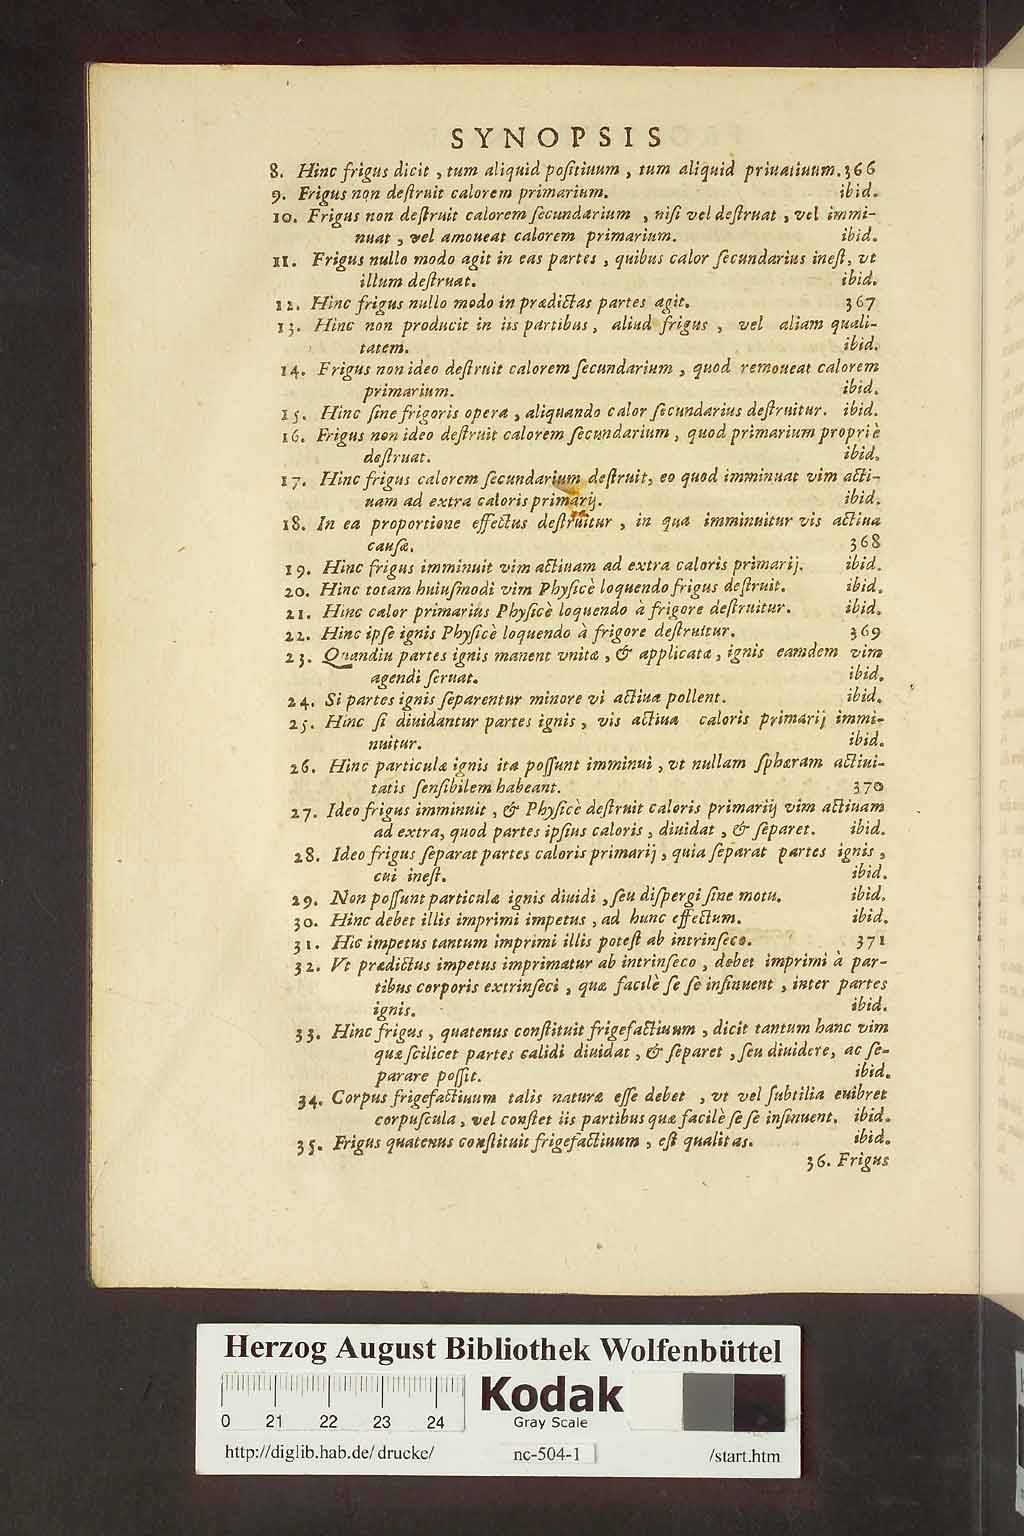 SYNOPSIS
8. Hinc frigus dicit , tum aliquid poſitiuum , tum aliquid priuatiuum. 366
9. Frigus non deſtruit calorem primarium. ibid.
10. Frigus non deſtruit calorem ſecundarium , niſi vel deſtruat , vel immi-
nuat , vel amoueat calorem primarium. ibid.
11. Frigus nullo modo agit in eas partes , quibus calor ſecundarius ineſt, vt
illum deſtruat. ibid.
12. Hinc frigus nullo modo in prædictas partes agit. 367
13. Hinc non producit in iis partibus, aliud frigus , vel aliam quali-
tatem. ibid.
14. Frigus non ideo deſtruit calorem ſecundarium , quod remoueat calorem
primarium. ibid.
15. Hinc ſine frigoris opera , aliquando calor ſecundarius deſtruitur. ibid.
16. Frigus non ideo deſtruit calorem ſecundarium , quod primarium propriè
deſtruat. ibid.
17. Hinc frigus calorem ſecundarium deſtruit, eo quod imminuat vim acti-
uam ad extra caloris primarij. ibid.
18. In ea proportione effectus deſtruitur , in qua imminuitur vis actiua
cauſæ. 368
19. Hinc frigus imminuit vim actiuam ad extra caloris primarij. ibid.
20. Hinc totam huiuſmodi vim Phyſicè loquendo frigus deſtruit. ibid.
21. Hinc calor primarius Phyſicè loquendo à frigore deſtruitur. ibid.
22. Hinc ipſe ignis Phyſicè loquendo à frigore deſtruitur. 369
23. Quandiu partes ignis manent vnitæ , & applicatæ , ignis eamdem vim
agendi ſeruat. ibid.
24. Si partes ignis ſeparentur minore vi actiua pollent. ibid.
25. Hinc ſi diuidantur partes ignis , vis actiua caloris primarij immi-
nuitur. ibid.
26. Hinc particulæ ignis ita poſſunt imminui , vt nullam ſphæram actiui-
tatis ſenſibilem habeant. 370
27. Ideo frigus imminuit , & Phyſicè deſtruit caloris primarij vim actiuam
ad extra, quod partes ipſius caloris , diuidat , & ſeparet. ibid.
28. Ideo frigus ſeparat partes caloris primarij , quia ſeparat partes ignis ,
cui ineſt. ibid.
29. Non poſſunt particulæ ignis diuidi , ſeu diſpergi ſine motu. ibid.
30. Hinc debet illis imprimi impetus , ad hunc effectum. ibid.
31. Hic impetus tantum imprimi illis poteſt ab intrinſeco. 371
32. Vt prædictus impetus imprimatur ab intrinſeco , debet imprimi à par-
tibus corporis extrinſeci , quæ facilè ſe ſe inſinuent , inter partes
ignis. ibid.
33. Hinc frigus , quatenus conſtituit frigefactiuum , dicit tantum hanc vim
quæ ſcilicet partes calidi diuidat , & ſeparet , ſeu diuidere, ac ſe-
parare poſſit. ibid.
34. Corpus frigefactiuum talis naturæ eſſe debet , vt vel ſubtilia euibret
corpuſcula , vel conſtet iis partibus quæ facilè ſe ſe inſinuent. ibid.
35. Frigus quatenus conſtituit frigefactiuum , eſt qualitas. ibid.
36. Frigus
Herzog August Bibliothek Wolfenbüttel
Kodak
Gray Scale
0 21 22 23 24
http://diglib.hab.de/ drucke/ nc-504-1 /start.htm